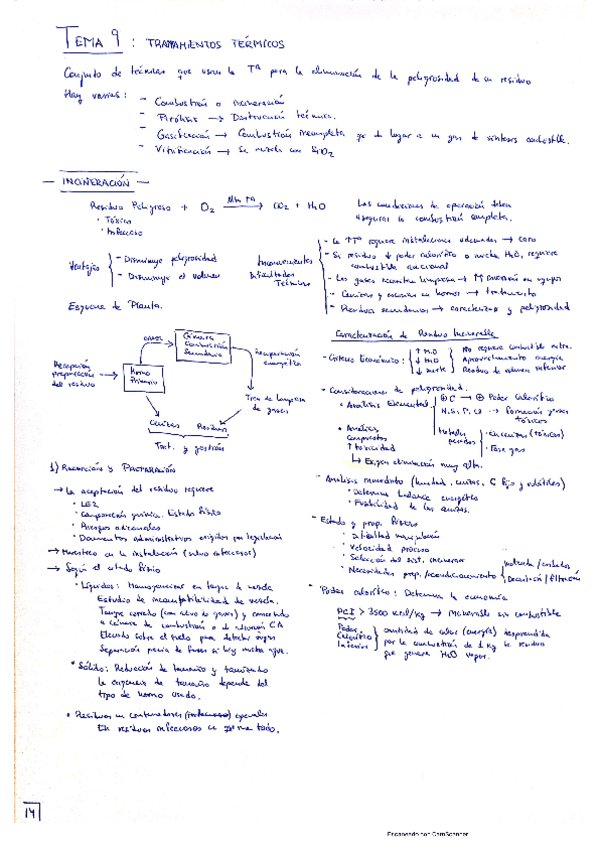 TEMA 9 : TRATAMIENTOS TÉRMICOS
Conjunto de técnicas que usan la Tª para la eliminación de la peligrosidad de un residuo
Hay varias:
- Combustión o incineración
- Pirólisis → Destrucción térmica.
- Gasificación → Combustión incompleta que da lugar a un gas de síntesis combustible.
- Vitrificación → Se mezcla con SiO2
— INCINERACIÓN —
Residuo Peligroso + O2 → CO2 + H2O
• Tóxico
• Infeccioso
Las condiciones de operación deben
asegurar la combustión completa.
Ventajas
- Disminuye peligrosidad
- Disminuye el volumen
Inconvenientes
Dificultades
Técnicas
- La ↑Tª requiere instalaciones adecuadas → caro
- Si residuo ↓ poder calorífico o mucha H2O, requiere
combustible adicional
- Los gases necesitan limpieza → ↑ inversión en equipos
- Cenizas y escorias en hornos → tratamiento
- Residuos secundarios → caracterizar y peligrosidad
Esquema de Planta.
Recepción
preparación
del residuo
Horno
Primario
GASES
Cámara
Combustión
Secundaria
Recuperación
energética
Tren de limpieza
de gases
Cenizas
Residuos
Trat. y gestión
1) RECEPCIÓN Y PREPARACIÓN
→ La aceptación del residuo requiere
• Composición química. Estado físico
• Riesgos adicionales
• Documentos administrativos exigidos por legislación
→ Muestreo en la instalación
→ Según el estado físico
• Líquidos: Homogeneizar en tanque de mezcla
Estudio de incompatibilidad de mezcla.
Tanque cerrado (con salida de gases) y conectado
a cámara de combustión o de adsorción CA
Elevado sobre el suelo para detectar fugas
Separación previa de fases si hay mucha agua.
• Sólido: Reducción de tamaño y tamizado
la exigencia de tamaño depende del
tipo de horno usado.
• Residuos en contenedores especiales
En residuos infecciosos se quema todo.
Caracterización de Residuo Incinerable
- Criterio Económico:
↓ H2O
↓ inerte
No requiere combustible extra.
Aprovechamiento energía
Residuo de volumen inferior
- Consideraciones de peligrosidad.
• Análisis Elemental
⊕ C → ⊕ Poder Calorífico
→ formación gases
tóxicos
Metales
pesados
• Fase gas
• Análisis
Compuestos
↑ toxicidad
↳ Exigen eliminación muy alta.
- Análisis inmediato (humedad, cenizas, C fijo y volátiles)
• Determina balance energético
- Estado y prop. físicas
• Velocidad proceso
• Selección del sist. incinerar
• Necesidades prep./acondicionamiento
- Poder calorífico: Determina la economía
→ incinerable sin combustible
Poder
Calorífico
Inferior
cantidad de calor (energía) desprendida
por la combustión de 1 kg de residuo
que genera H2O vapor.
14
Escaneado con CamScanner